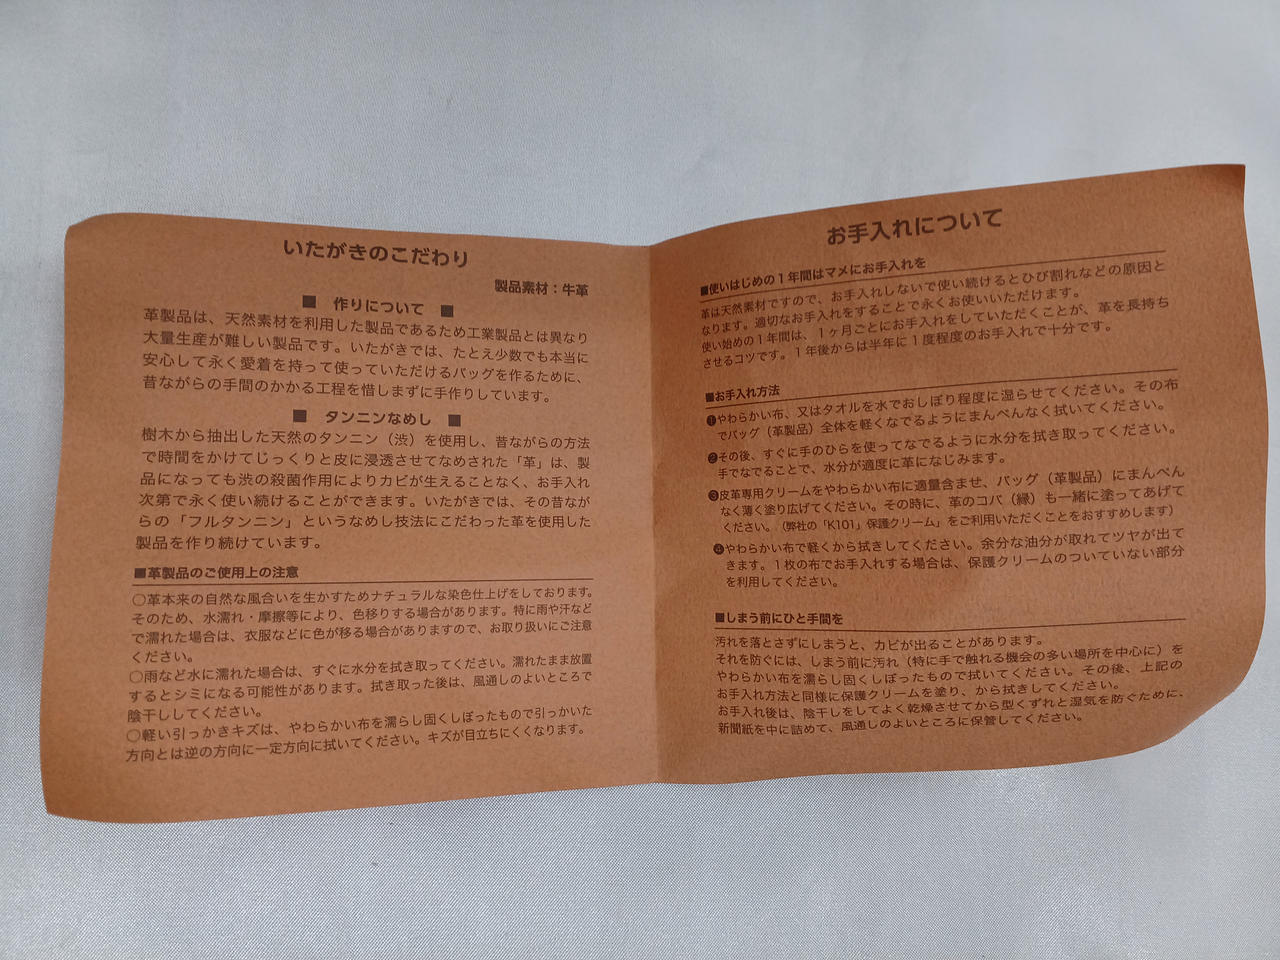 いたがきのこだわり
製品素材：牛革
■　作りについて　■
革製品は、天然素材を利用した製品であるため工業製品とは異なり
大量生産が難しい製品です。いたがきでは、たとえ少数でも本当に
安心して永く愛着を持って使っていただけるバッグを作るために、
昔ながらの手間のかかる工程を惜しまずに手作りしています。
■　タンニンなめし　■
樹木から抽出した天然のタンニン（渋）を使用し、昔ながらの方法
で時間をかけてじっくりと皮に浸透させてなめされた「革」は、製
品になっても渋の殺菌作用によりカビが生えることなく、お手入れ
次第で永く使い続けることができます。いたがきでは、その昔なが
らの「フルタンニン」というなめし技法にこだわった革を使用した
製品を作り続けています。
■革製品のご使用上の注意
○革本来の自然な風合いを生かすためナチュラルな染色仕上げをしております。
そのため、水濡れ・摩擦等により、色移りする場合があります。特に雨や汗など
で濡れた場合は、衣服などに色が移る場合がありますので、お取り扱いにご注意
ください。
○雨など水に濡れた場合は、すぐに水分を拭き取ってください。濡れたまま放置
するとシミになる可能性があります。拭き取った後は、風通しのよいところで
陰干ししてください。
○軽い引っかきキズは、やわらかい布を濡らし固くしぼったもので引っかいた
方向とは逆の方向に一定方向に拭いてください。キズが目立ちにくくなります。
お手入れについて
■使いはじめの１年間はマメにお手入れを
革は天然素材ですので、お手入れしないで使い続けるとひび割れなどの原因と
なります。適切なお手入れをすることで永くお使いいただけます。
使い始めの１年間は、１ヶ月ごとにお手入れをしていただくことが、革を長持ち
させるコツです。１年後からは半年に１度程度のお手入れで十分です。
■お手入れ方法
❶やわらかい布、又はタオルを水でおしぼり程度に湿らせてください。その布
でバッグ（革製品）全体を軽くなでるようにまんべんなく拭いてください。
❷その後、すぐに手のひらを使ってなでるように水分を拭き取ってください。
手でなでることで、水分が適度に革になじみます。
❸皮革専用クリームをやわらかい布に適量含ませ、バッグ（革製品）にまんべん
なく薄く塗り広げてください。その時に、革のコバ（縁）も一緒に塗ってあげて
ください。（弊社の「K101」保護クリーム」をご利用いただくことをおすすめします）
❹やわらかい布で軽くから拭きしてください。余分な油分が取れてツヤが出て
きます。１枚の布でお手入れする場合は、保護クリームのついていない部分
を利用してください。
■しまう前にひと手間を
汚れを落とさずにしまうと、カビが出ることがあります。
それを防ぐには、しまう前に汚れ（特に手で触れる機会の多い場所を中心に）を
やわらかい布を濡らし固くしぼったもので拭いてください。その後、上記の
お手入れ方法と同様に保護クリームを塗り、から拭きしてください。
お手入れ後は、陰干しをしてよく乾燥させてから型くずれと湿気を防ぐために、
新聞紙を中に詰めて、風通しのよいところに保管してください。